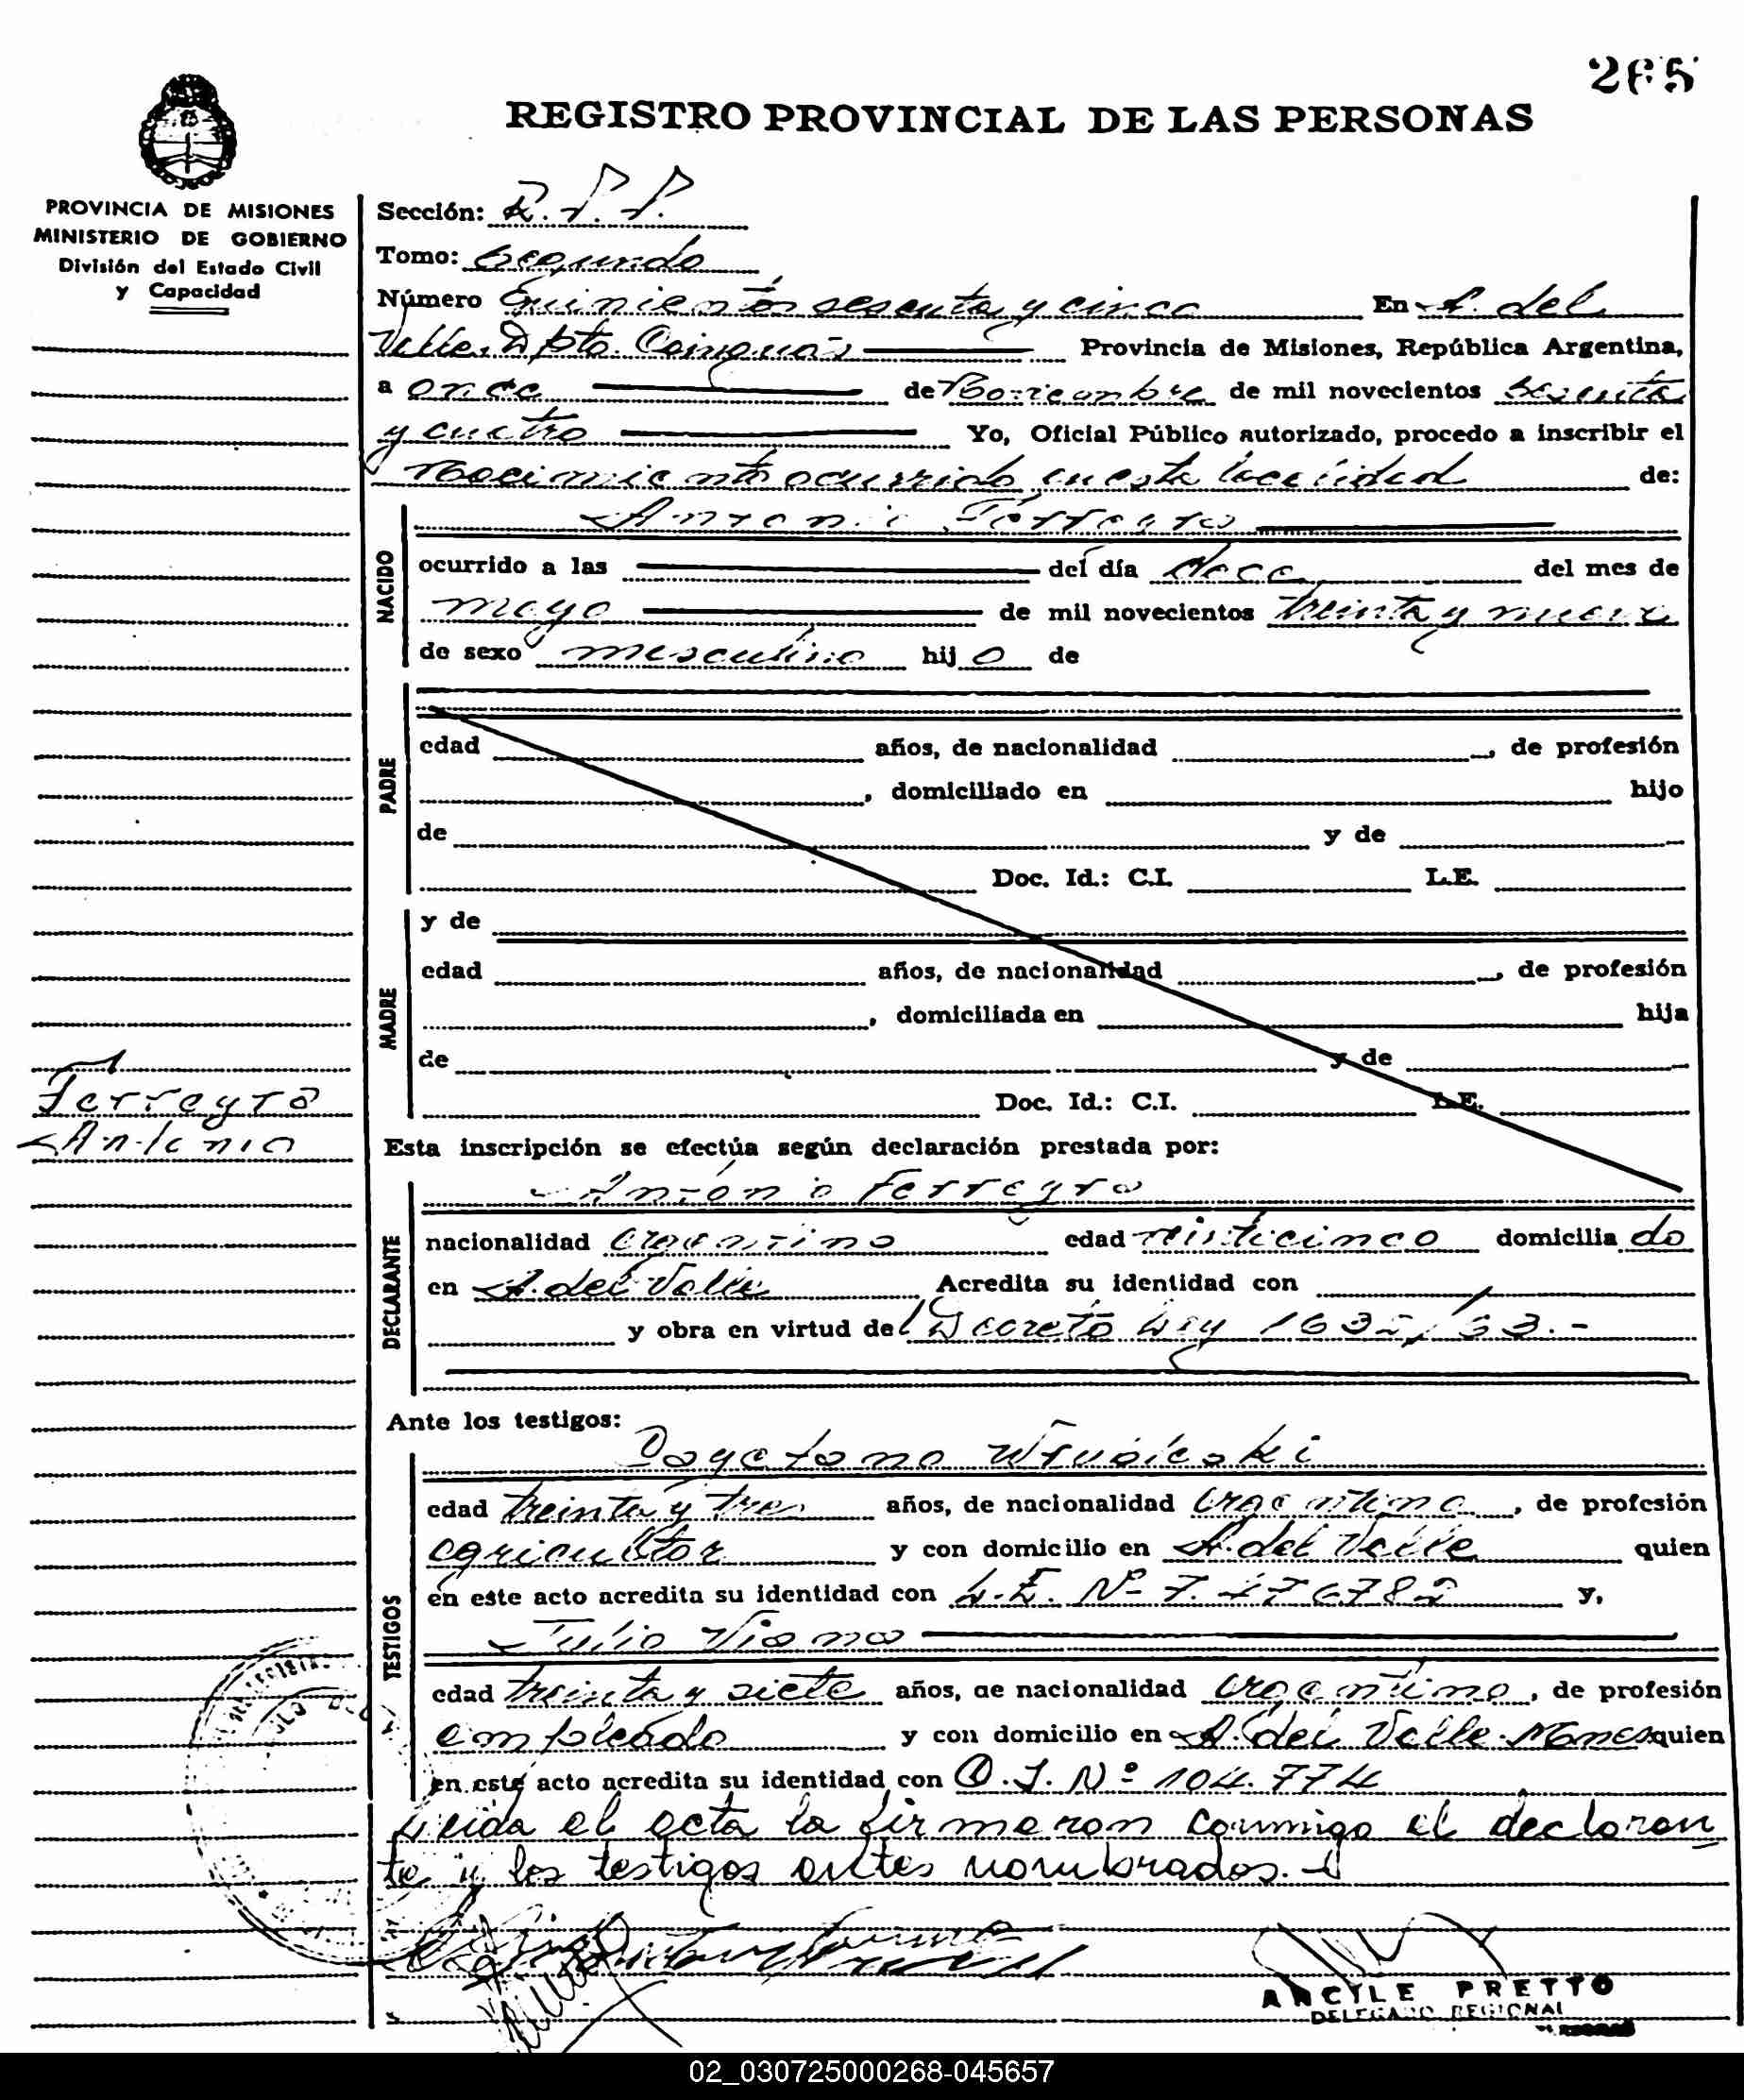 265
REGISTRO PROVINCIAL DE LAS PERSONAS
PROVINCIA DE MISIONES
MINISTERIO DE GOBIERNO
División del Estado Civil
y Capacidad
Sección: R. P. P.
Tomo: Segundo
Número Quinientos sesenta y cinco En A. del
Valle, Dpto. Cainguás Provincia de Misiones, República Argentina,
a once de Noviembre de mil novecientos sesenta
y cuatro Yo, Oficial Público autorizado, procedo a inscribir el
Nacimiento ocurrido en esta localidad de:
NACIDO
Antonio Ferreyra
ocurrido a las del día doce del mes de
mayo de mil novecientos treinta y nueve
de sexo masculino hij o de
PADRE
edad años, de nacionalidad , de profesión
, domiciliado en hijo
de y de
Doc. Id.: C.I. L.E.
MADRE
y de
edad años, de nacionalidad , de profesión
, domiciliada en hija
de y de
Doc. Id.: C.I. L.E.
Ferreyra
Antonio
Esta inscripción se efectúa según declaración prestada por:
DECLARANTE
Antonio Ferreyra
nacionalidad argentino edad veinticinco domicilia do
en A. del Valle Acredita su identidad con
y obra en virtud del Decreto Ley 1632/63.-
Ante los testigos:
TESTIGOS
Cayetano
edad treinta y tres años, de nacionalidad argentino, de profesión
agricultor y con domicilio en A. del Valle quien
en este acto acredita su identidad con L.E. Nº 7.476782 y,
Julio Viana
edad treinta y siete años, de nacionalidad argentino, de profesión
empleado y con domicilio en A. del Valle Mnes quien
en este acto acredita su identidad con C.I. Nº 104.774
Leida el acta la firmaron conmigo el declaran
te y los testigos antes nombrados.
ANCILE PRETTO
DELEGADO REGIONAL
02_030725000268-045657